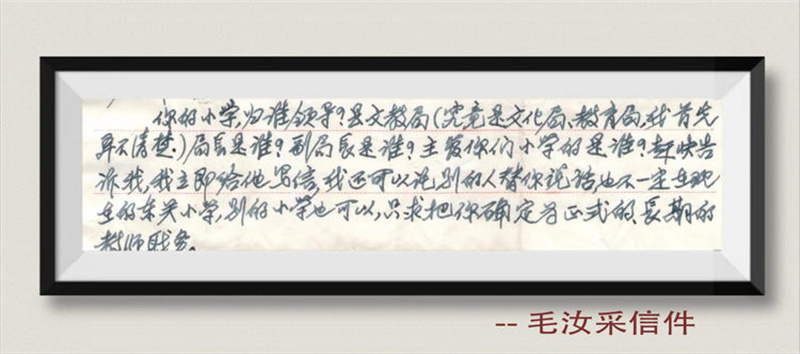 你的小学,归谁领导?县文教局(究竟是文化局、教育局,我首先
弄不清楚。)局长是谁?副局长是谁?主管你们小学的是谁?赶快告
诉我,我立即给他写信,我还可以托别的人替你说话,也不一定在现
在的东关小学,别的小学也可以,只求把你确定为正式的、长期的
教师职务。
-- 毛汝采信件